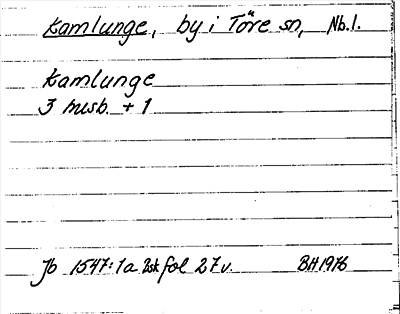 Kamlunge, by i Töre sn, Nb.l.
Kamlunge
3 husb. + 1
Jb 1547:1a 2sk fol 27v. BH1976